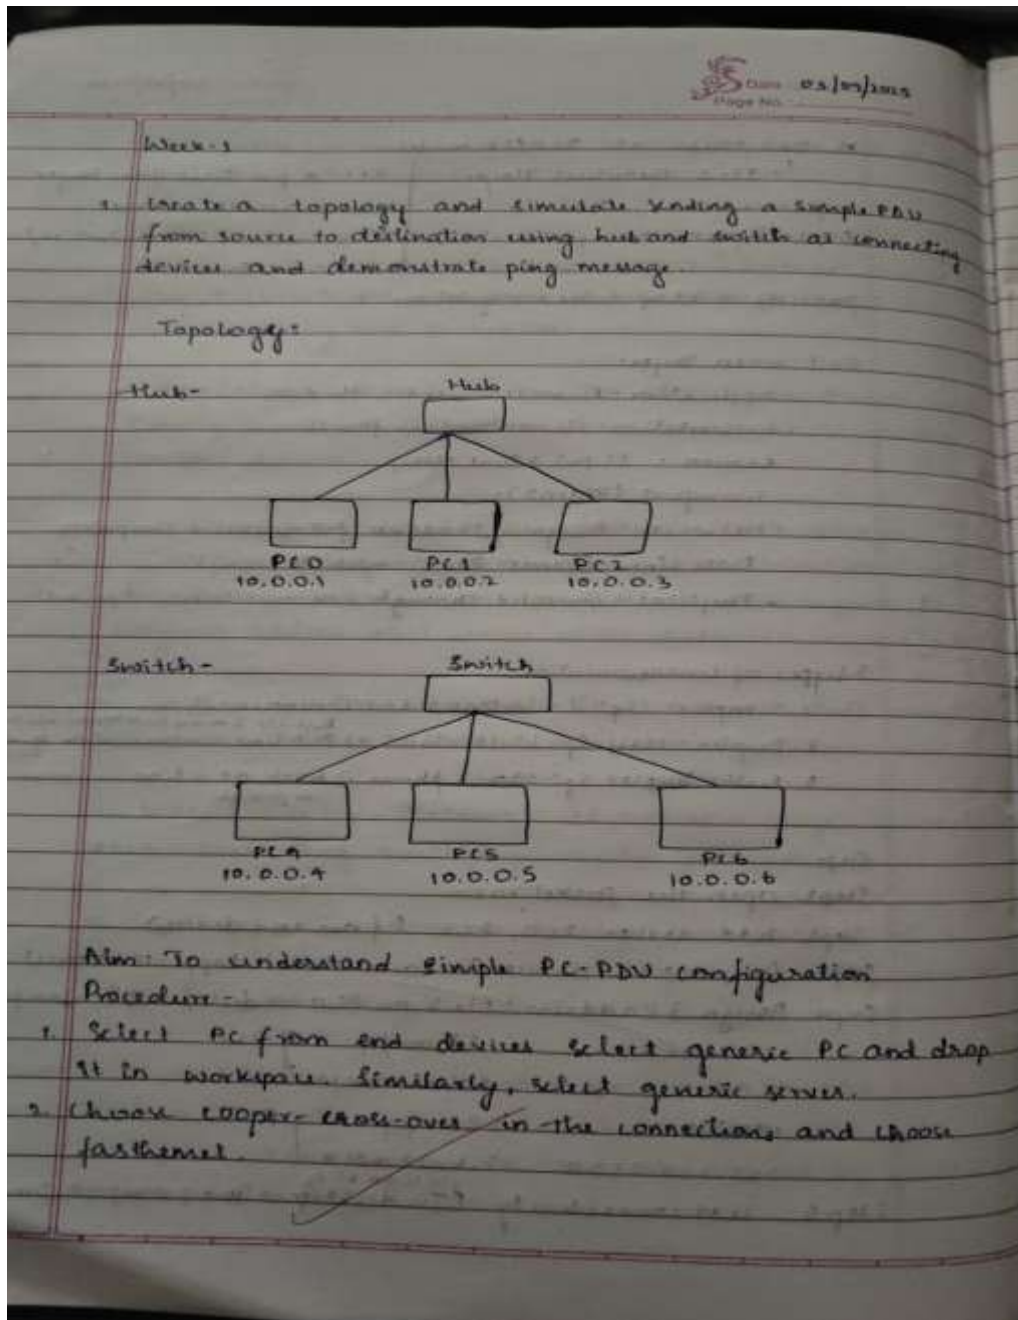 Date 03/09/2025
Page No.
Week-1
1. Create a topology and simulate sending a simple PDU
from source to destination using hub and switch as connecting
devices and demonstrate ping message.
Topology:
Hub-
Hub
PC0 PC1 PC2
10.0.0.1 10.0.0.2 10.0.0.3
Switch-
Switch
PC4 PC5 PC6
10.0.0.4 10.0.0.5 10.0.0.6
Aim: To understand simple PC-PDU configuration
Procedure-
1. Select PC from end devices select generic PC and drop
it in workspace. Similarly, select generic server.
2. Choose cooper-cross-over in the connections and choose